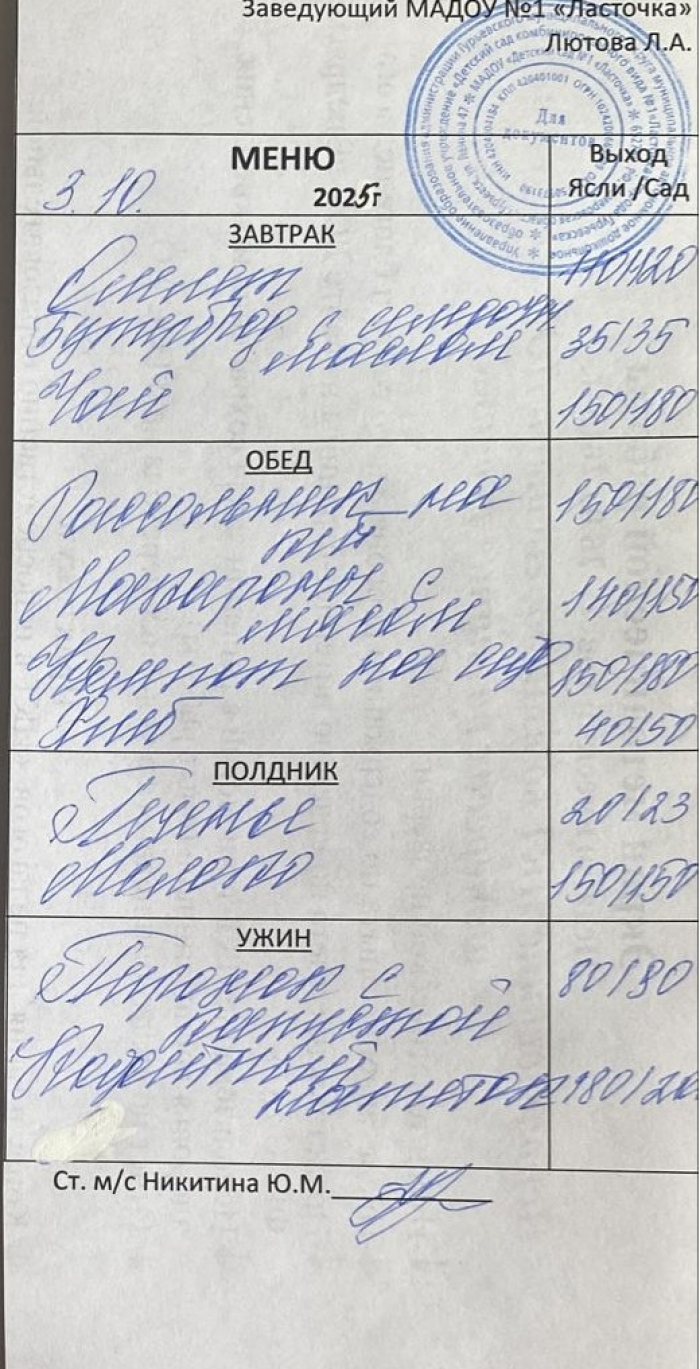 Заведующий МАДОУ №1 «Ласточка»
Лютова Л.А.
Для
документов
МЕНЮ
Выход
3. 10. 2025г
Ясли /Сад
ЗАВТРАК
Омлет 110/120
Бутерброд с сливочн
маслом 35/35
Чай 150/180
ОБЕД
Рассольник на 150/180
Макароны с 140/150
мясом
Компот из 150/180
Хлеб 40/50
ПОЛДНИК
Печенье 20/23
Молоко 150/150
УЖИН
Пирожок с 80/80
капустой
напиток 180/20
Ст. м/с Никитина Ю.М.